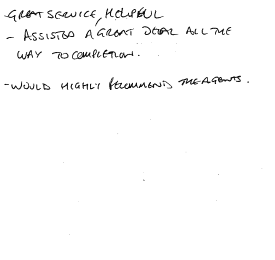 -GREAT SERVICE, HELPFUL
- ASSISTED A GREAT DEAL ALL THE
WAY TO COMPLETION.
-WOULD HIGHLY RECOMMEND THE AGENTS.